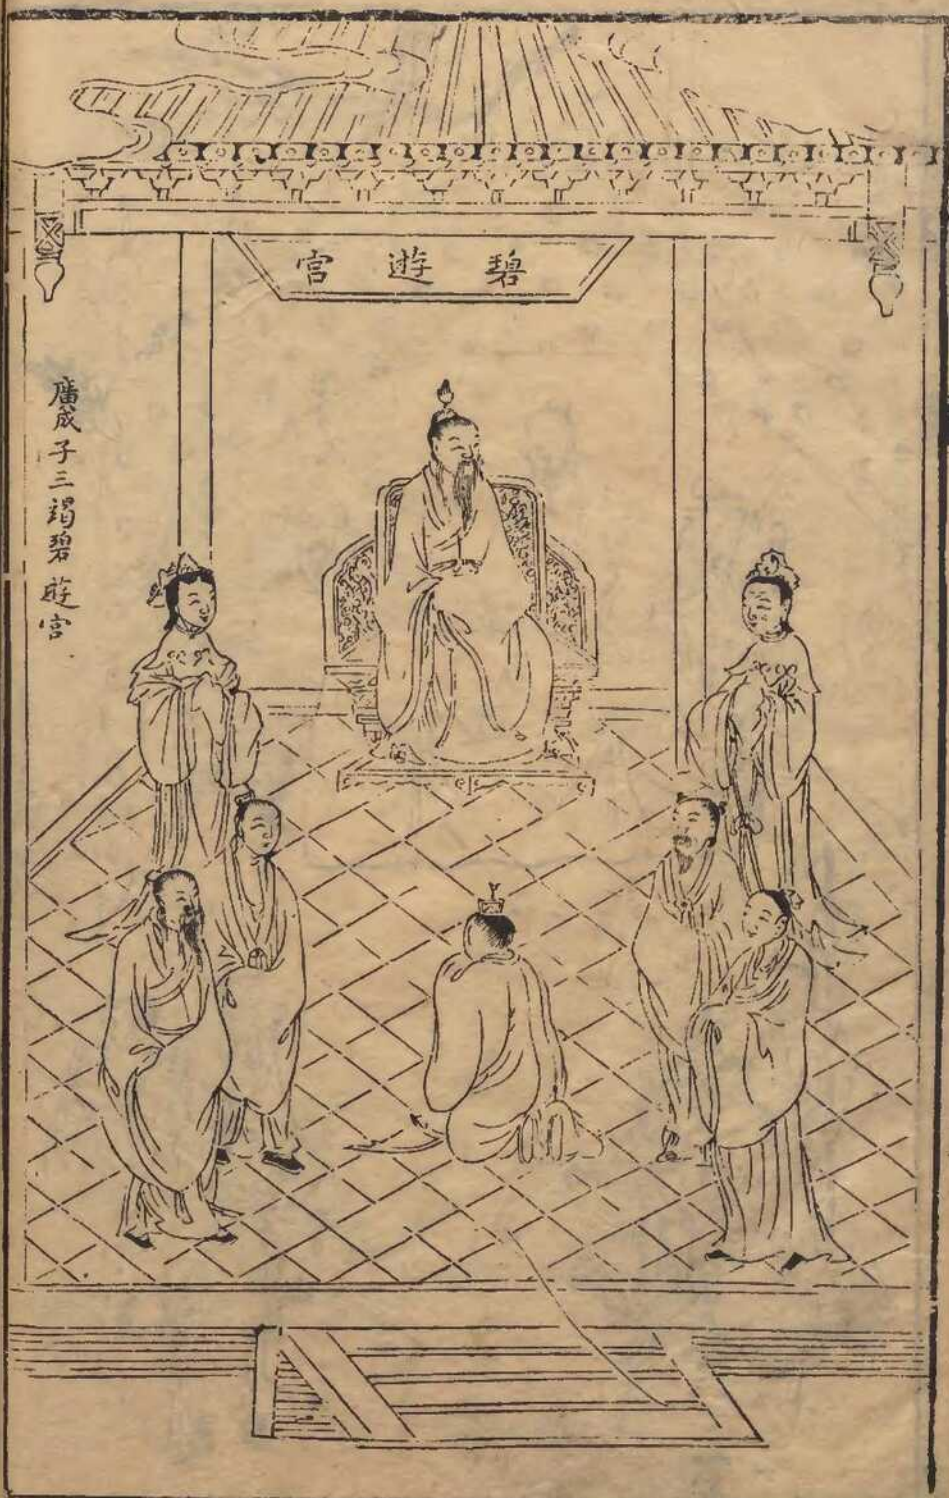 碧遊宫
廣成子三謁碧遊宫